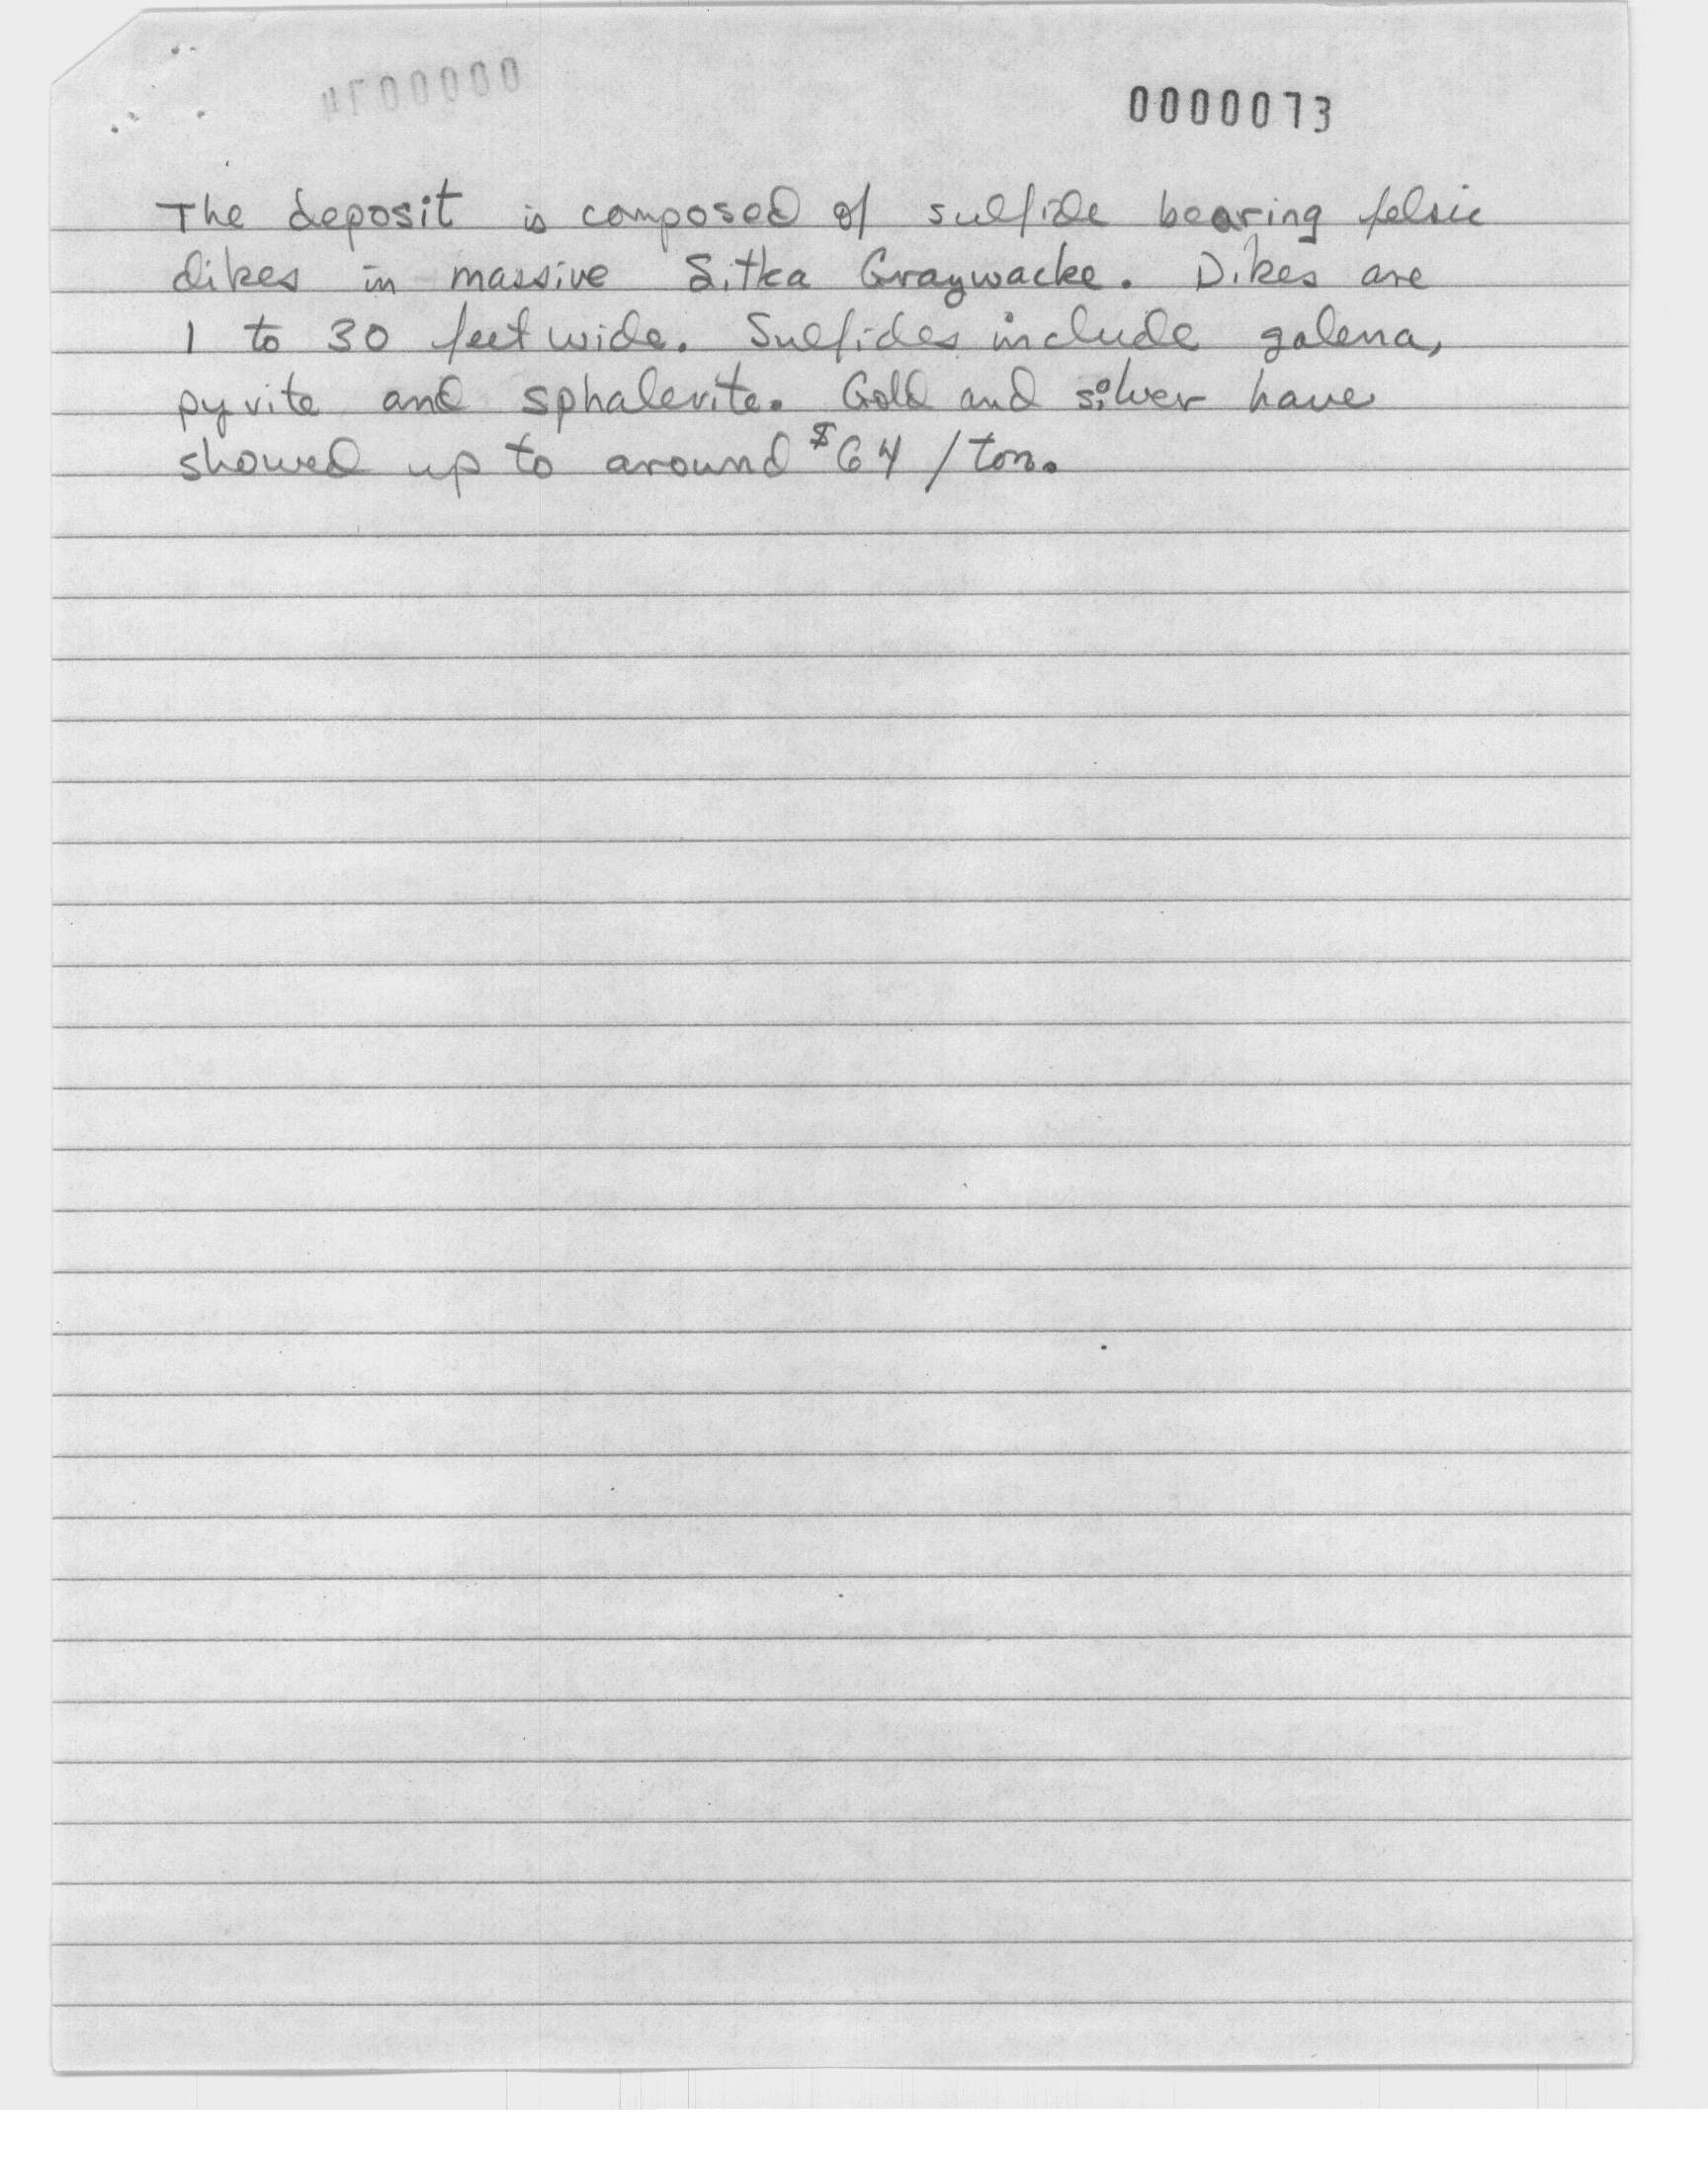 0000073
The deposit is composed of sulfide bearing felsic
dikes in massive Sitka Graywacke. Dikes are
1 to 30 feet wide. Sulfides include galena,
pyrite and sphalerite. Gold and silver have
showed up to around $64 /ton.